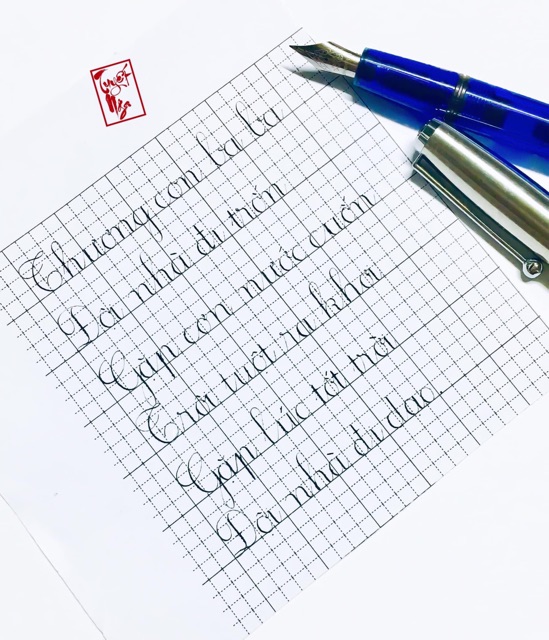 Thương con ba ba
Đội nhà đi trốn
Gặp cơn nước cuốn
Trôi tuột ra khơi
Gặp lúc tốt trời
Đội nhà đi dạo.